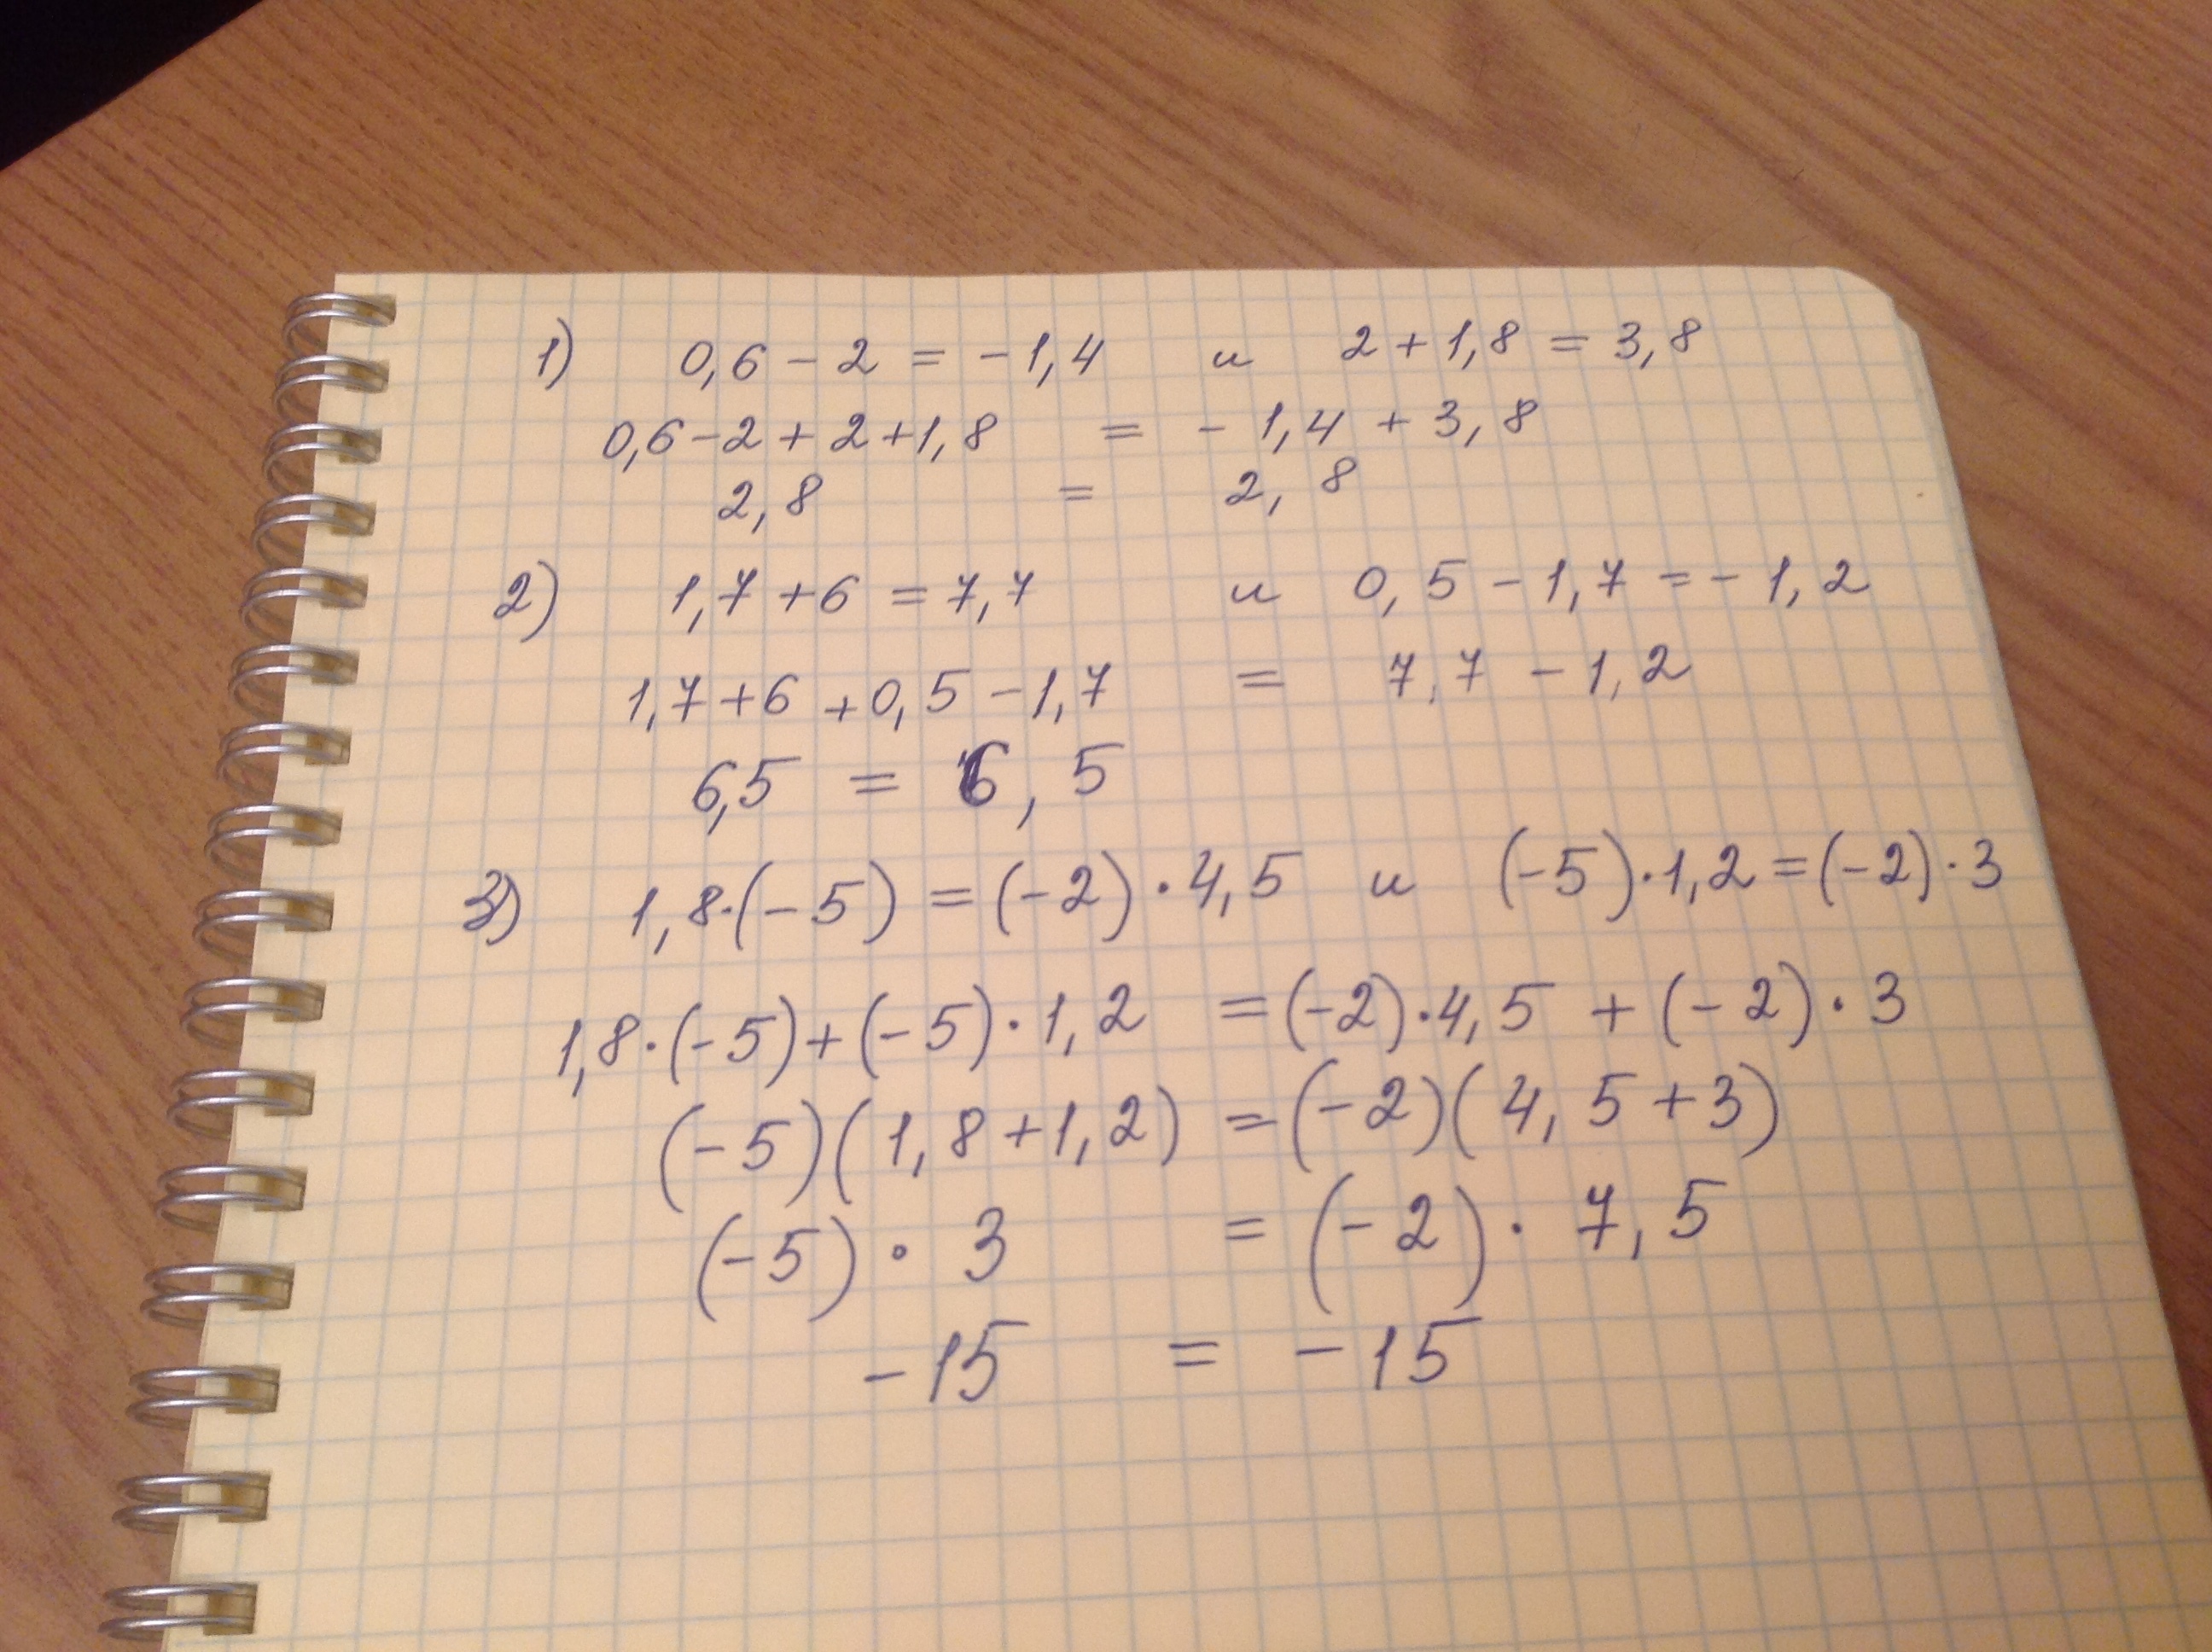 1) 0,6 - 2 = - 1,4 и 2 + 1,8 = 3,8
0,6 - 2 + 2 + 1,8 = - 1,4 + 3,8
2,8 = 2,8
2) 1,7 + 6 = 7,7 и 0,5 - 1,7 = - 1,2
1,7 + 6 + 0,5 - 1,7 = 7,7 - 1,2
6,5 = 6,5
3) 1,8·(-5) = (-2)·4,5 и (-5)·1,2 = (-2)·3
1,8·(-5) + (-5)·1,2 = (-2)·4,5 + (-2)·3
(-5)(1,8 + 1,2) = (-2)(4,5 + 3)
(-5)·3 = (-2)·7,5
-15 = -15